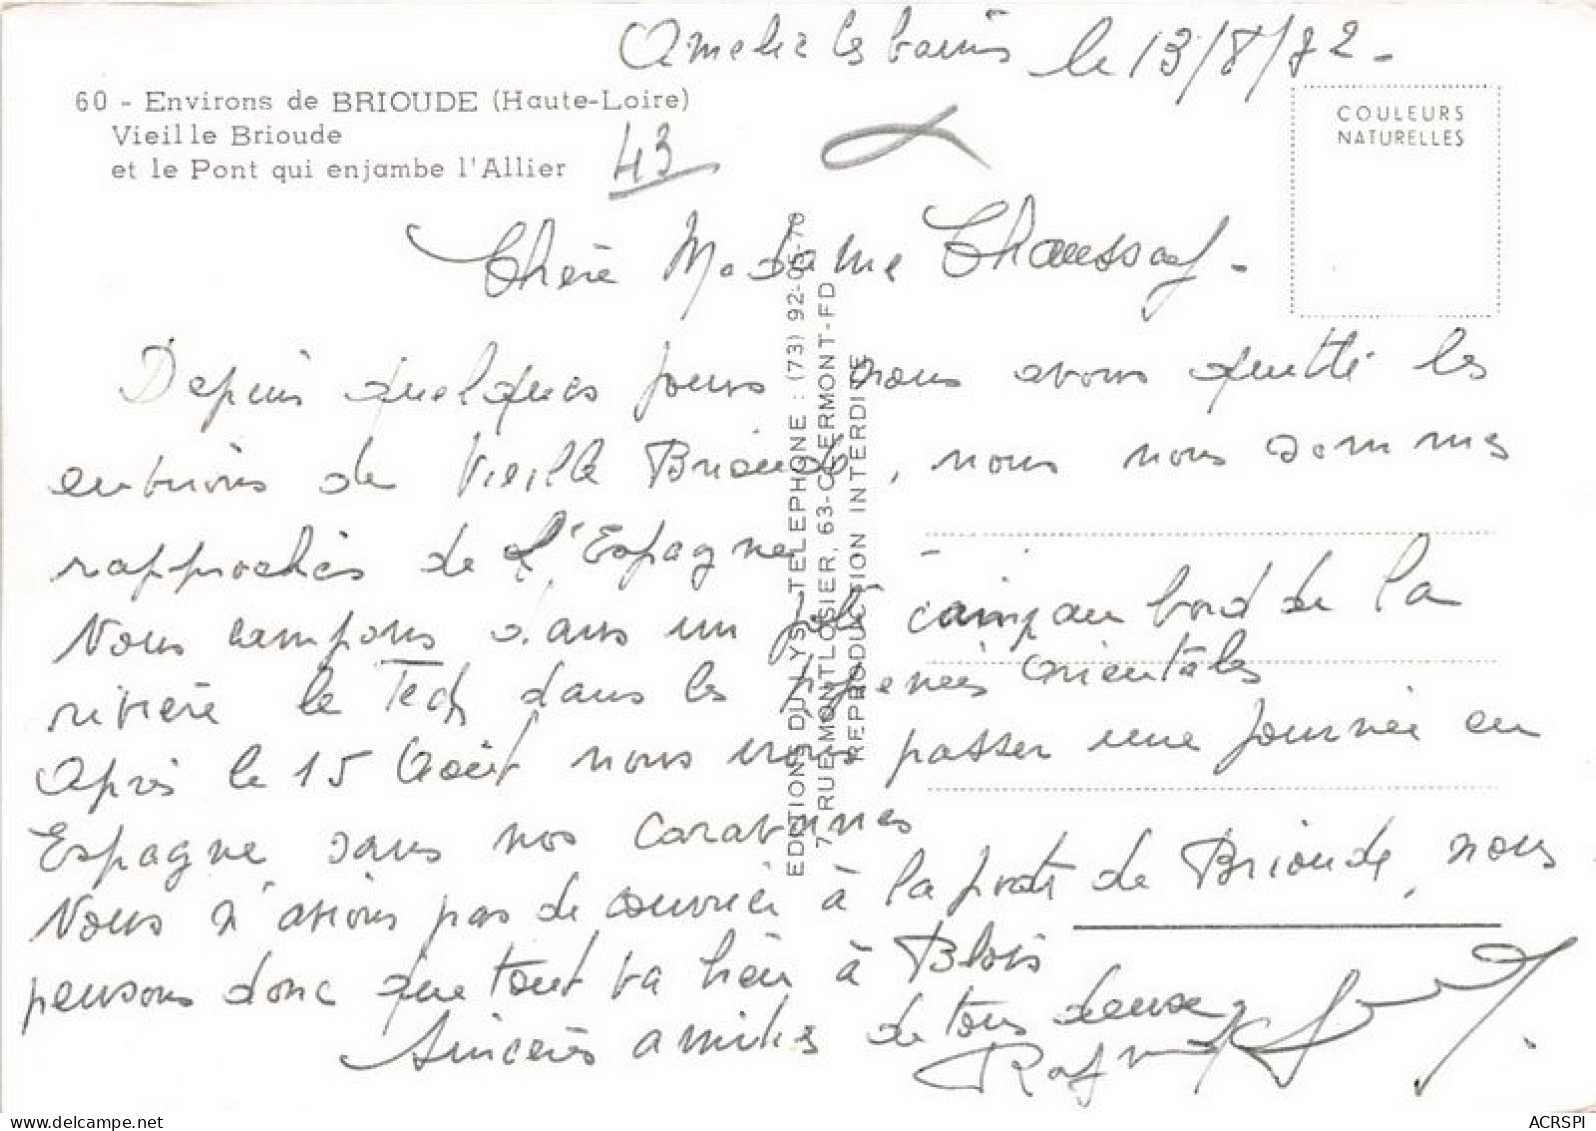 Amelie les bains le 13/8/82.
60 - Environs de BRIOUDE (Haute-Loire)
Vieille Brioude
et le Pont qui enjambe l'Allier
43
COULEURS
NATURELLES
Chère Madame
Depuis quelques jours nous avons quitté les
environs de Vieille Brioude, nous nous sommes
rapprochés de l'Espagne
Nous campons dans un joli camp au bord de la
rivière le Tech dans les Pyrenées orientales
Après le 15 Août nous irons passer une journée en
Espagne sans nos caravannes
Nous n'avions pas de courrier à la poste de Brioude, nous
pensons donc que tout va bien à Blois
Sincères amitiés de tous deux
EDITIONS DU LYS - TELEPHONE : (73) 92-06-70
7, RUE MONTLOSIER, 63-CLERMONT-FD
REPRODUCTION INTERDITE
ACRSPI